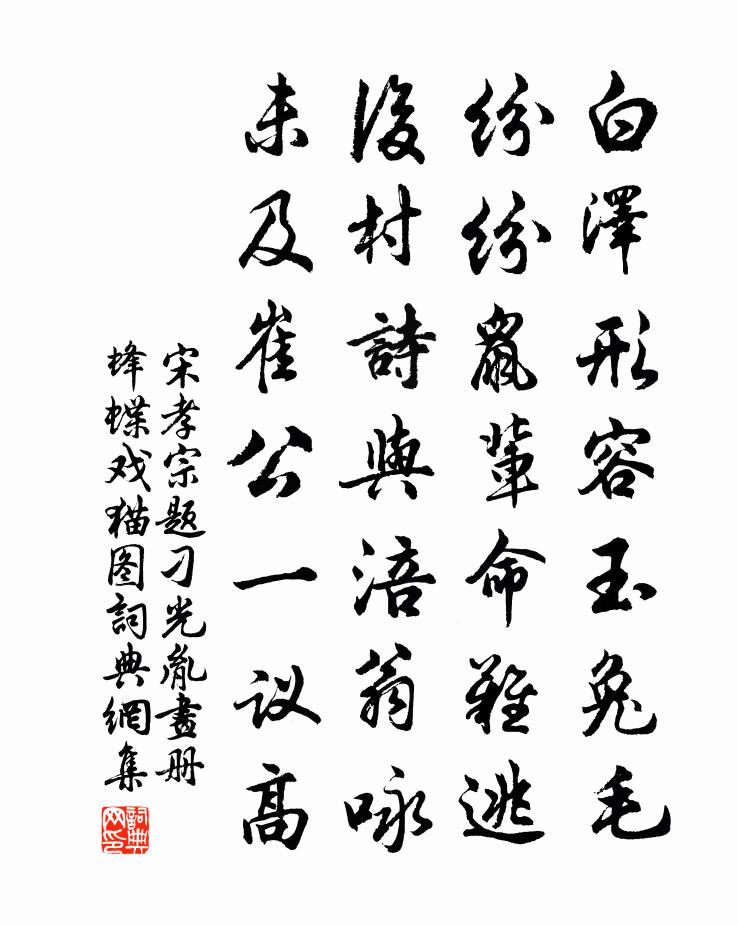 白澤形容玉兔毛
紛紛鼠輩命難逃
後村詩與涪翁咏
未及崔公一议高
宋孝宗題刁光胤畫册
蜂蝶戏猫图詞典網集
詞典网印